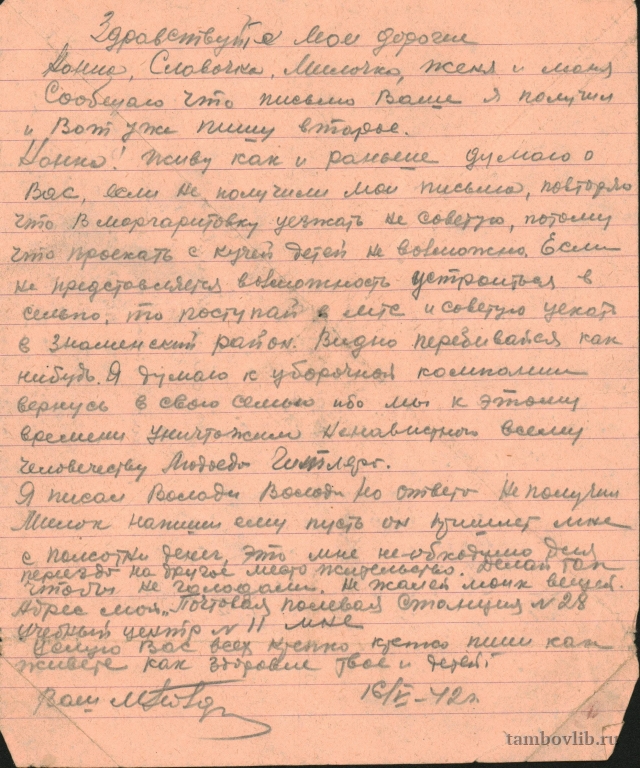 Здравствуйте мои дорогие
Нонна, Славочка, Милочка, Женя и маня
Сообщаю что письмо Ваше я получил
и Вот уже пишу второе.
Нонна! Живу как и раньше думаю о
Вас, если не получили мои письма, повторяю
что В маргаритовку уезжать не советую, потому
что проехать с кучей детей не возможно. Если
не представляется возможность устроиться в
сельпо, то поступай в мтс и советую уехать
в Знаменский район. Видно перебивайся как
нибудь. Я думаю к уборочной компании
вернусь в свою семью ибо мы к этому
времени уничтожим ненавистного всему
человечеству Людоеда Гитлера.
Я писал Володи но ответа не получил
Милок напиши ему пусть он пришлет мне
с полсотни денег, это мне не-обходимо для
переезда на другое место жительство. Делай так
чтобы не голодали. Не жалей моих вещей.
Адрес мой „Почтовая полевая Станция N 28
учебный центр N 11 мне
Целую Вас всех крепко крепко пиши как
живете как здоровье твое и детей!
Ваш
16/V-42г.
tambovlib.ru